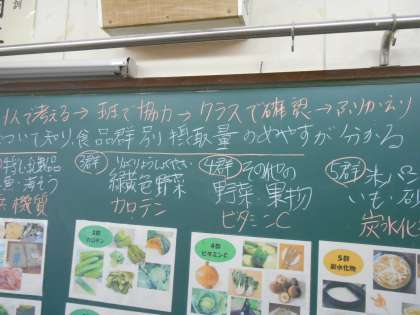 1人で考える→班で協力→クラスで確認→ふりかえり
ついて知り、食品群別摂取量のめやすが分かる
乳製品
無機質
3群
りょくおうしょくやさい
緑黄色野菜
カロテン
4群 その他の
野菜・果物
ビタミンC
5群 米・パ
いも・砂
炭水化
3群
カロテン
4群
ビタミンC
5群
炭水化物